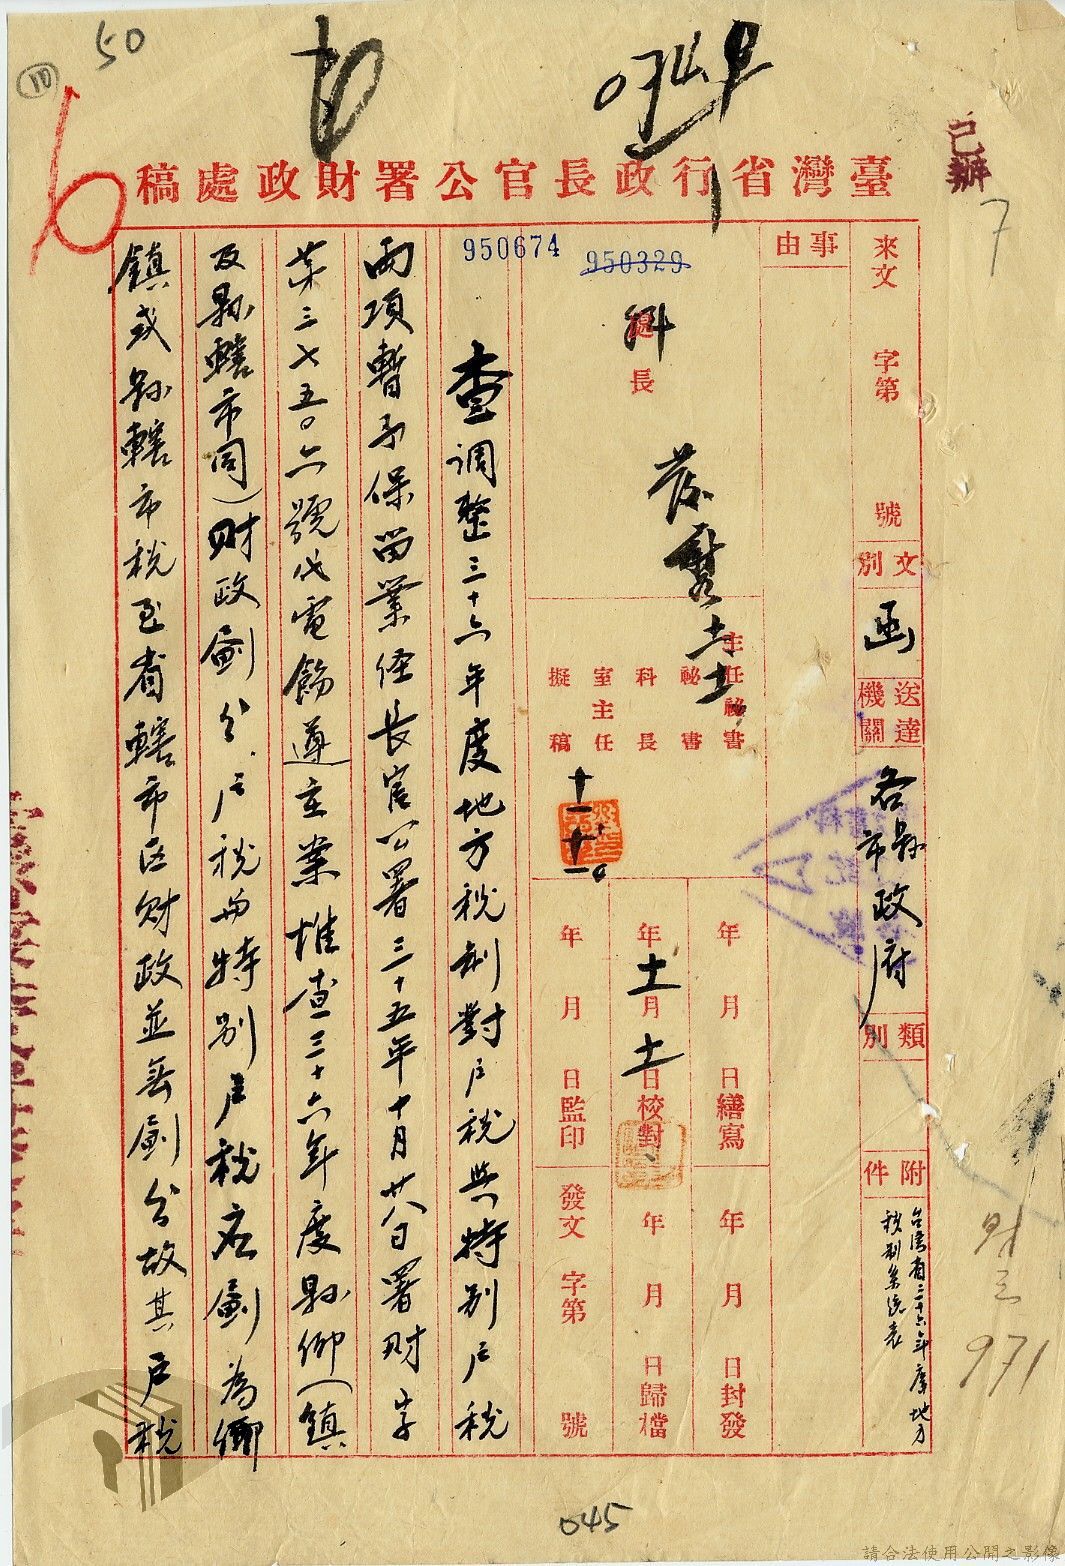 50
臺灣省行政長官公署財政處稿
已辦
7
來文 字第 號
文別 函
送達機關 各縣市政府
類別
附件 台灣省三十六年度地方稅制系統表
事由
950674
950329
處長
科
主任秘書
秘書
科長
室主任
擬稿
十一 十一
年 月 日繕寫
年 月 日校對
年 月 日監印
年 月 日封發
年 月 日歸檔
發文 字第 號
查調整三十六年度地方稅制對戶稅與特別戶稅
兩項暫予保留業經長官公署三十五年十月廿八日署財字
第三七五〇六號代電飭遵在案惟查三十六年度縣鄉(鎮
及縣轄市同)財政劃分戶稅與特別戶稅應劃為鄉
鎮或縣轄市稅至省轄市區財政並無劃分故其戶稅
財三
971
045
請合法使用公開之影像